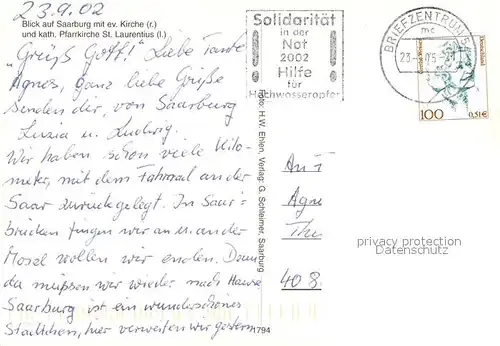 23.9.02
Blick auf Saarburg mit ev. Kirche (r.)
und kath. Pfarrkirche St. Laurentius (l.)
„Grüß Gott!" Liebe Tante
Agnes, ganz liebe Grüße
senden dir, von Saarburg
Luzia u. Ludwig.
Wir haben schon viele Kilo-
meter, mit dem Fahrrad an der
Saar zurückgelegt. In Saar-
brücken fingen wir an u. an der
Mosel wollen wir enden. Dann
da müssen wir wieder nach Hause
Saarburg ist ein wunderschönes
Städtchen, hier verweilten wir gestern
Foto: H.W. Ehlen, Verlag: G. Schleimer, Saarburg
1794
Solidarität
in der
Not
2002
Hilfe
für
Hochwasseropfer
BRIEFZENTRUM
mc
23
100
0,51€
An T
Agne
Thu
40 8
privacy protection
Datenschutz